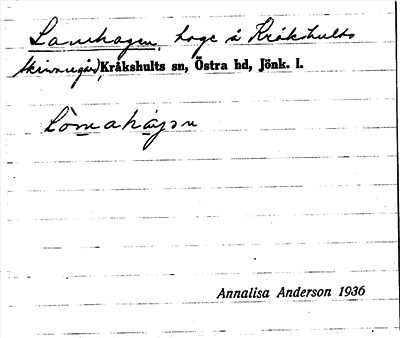 Lamhagen, hage å Kråkshults
skinnegärd, Kråkshults sn, Östra hd, Jönk. l.
Lòmahájən
Annalisa Anderson 1936